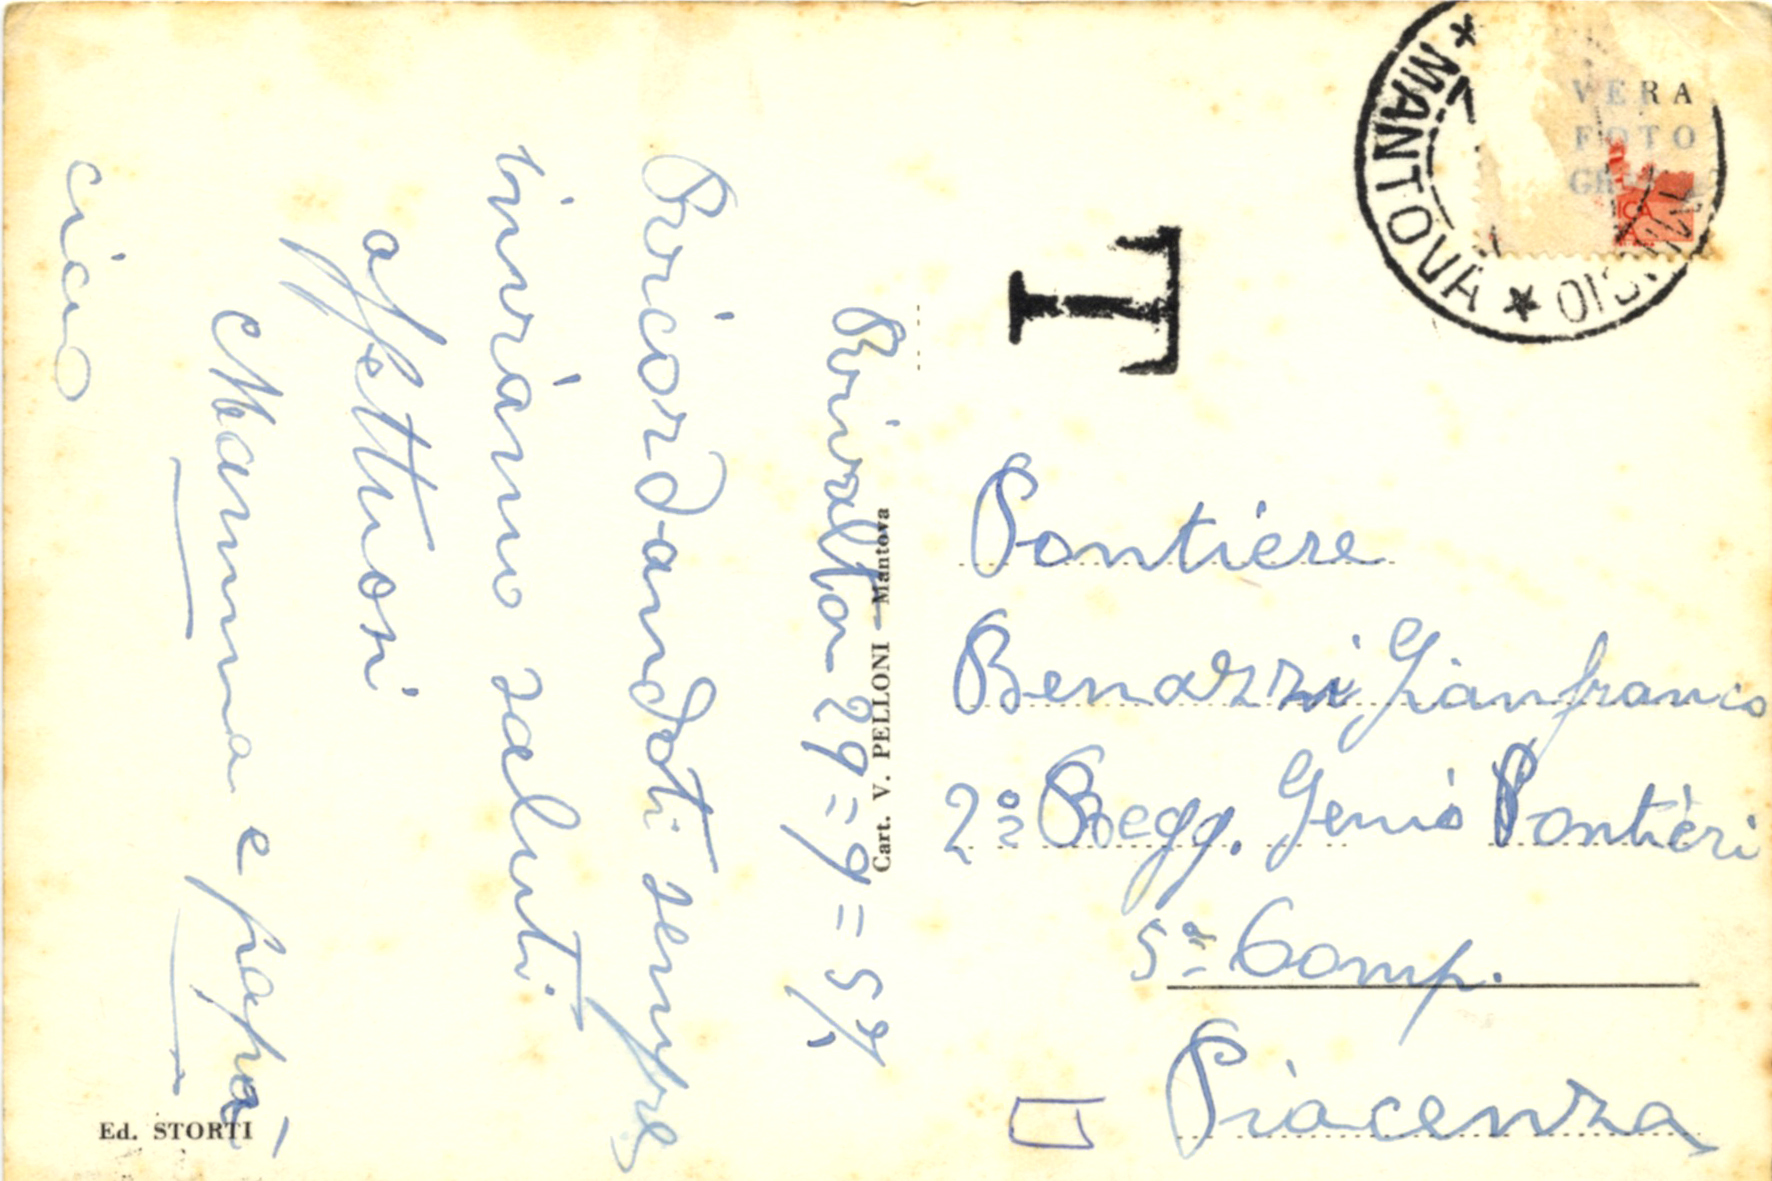 Rivalta 29=9=57
Ricordandoti sempre
inviamo saluti
affettuosi
Mamma e papà
ciao
Ed. STORTI
Cart. V. PELLONI - Mantova
T
* MANTOVA *
VERA
FOTO
Pontiere
Benazzi Gianfranco
2º Regg. Genio Pontieri
5ª Comp.
Piacenza